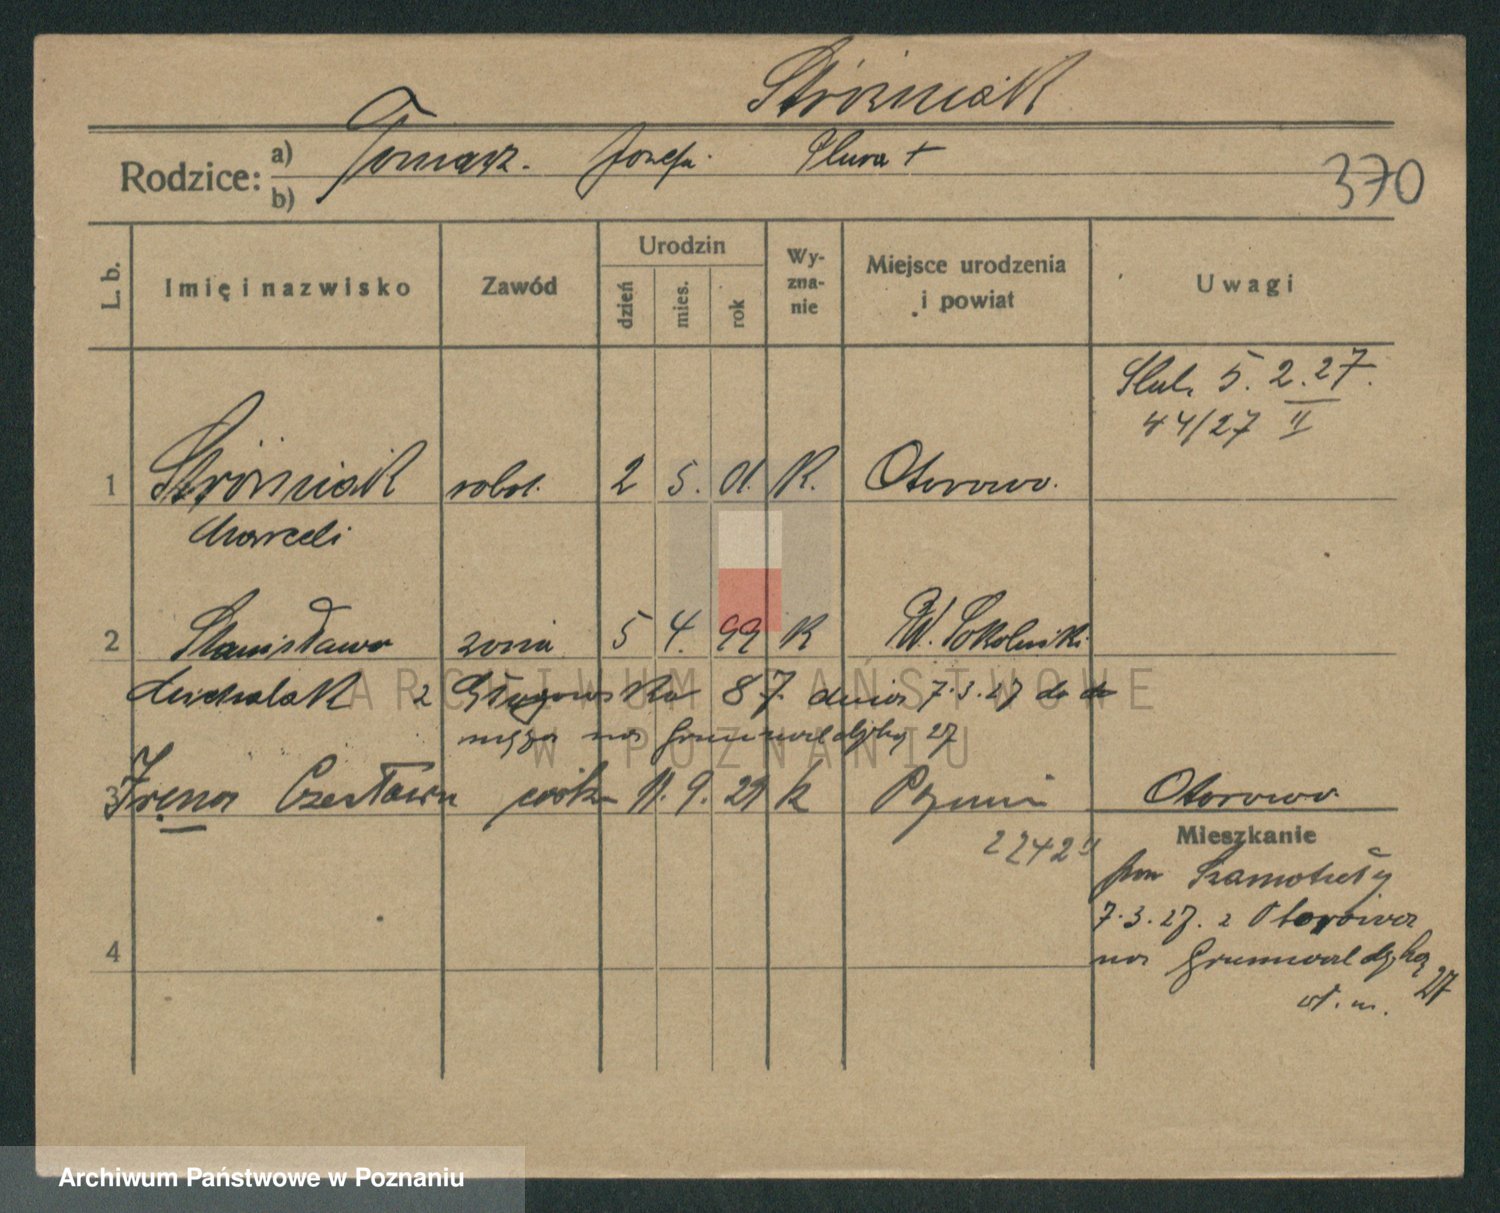 Stróżniak
Rodzice: a) Tomasz. Józefa
b)
370
L. b.
Imię i nazwisko
Zawód
Urodzin
dzień
mies.
rok
Wy-
zna-
nie
Miejsce urodzenia
i powiat
Uwagi
Ślub. 5. 2. 27.
44/27 II
1 Stróżniak robot. 2 5. 01. K. Otorowo.
Marceli
2 Stanisława żona 5 4. 99 K W. Sokolniki
Michalak z Głogowska 87. dnia 7.3.27 do
męża na Grunwaldzką 27
3 Irena Czesława córka 11. 9. 29 k Poznań
2242 II
Otorowo
Mieszkanie
pow Szamotuły
7.3.27. z Otorowa
na Grunwaldzką 27
4
ARCHIWUM PAŃSTWOWE
W POZNANIU
Archiwum Państwowe w Poznaniu